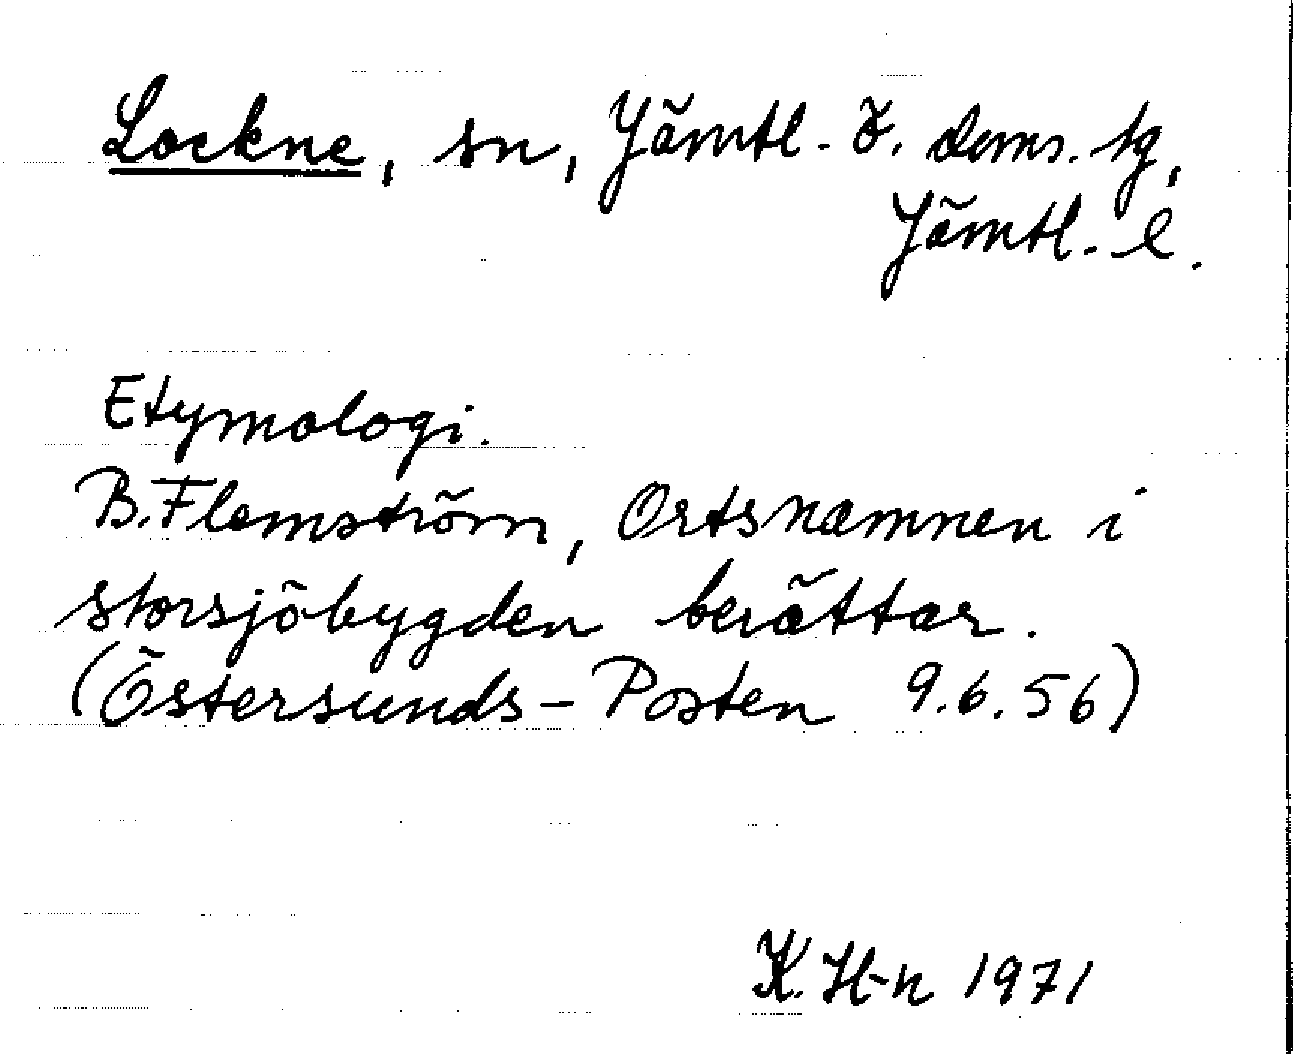 Lockne, sn, Jämtl. ö. doms. tg,
Jämtl. l.
Etymologi.
B. Flemström, Ortsnamnen i
storsjöbygden berättar.
(Östersunds-Posten 9.6.56)
K. H-n 1971